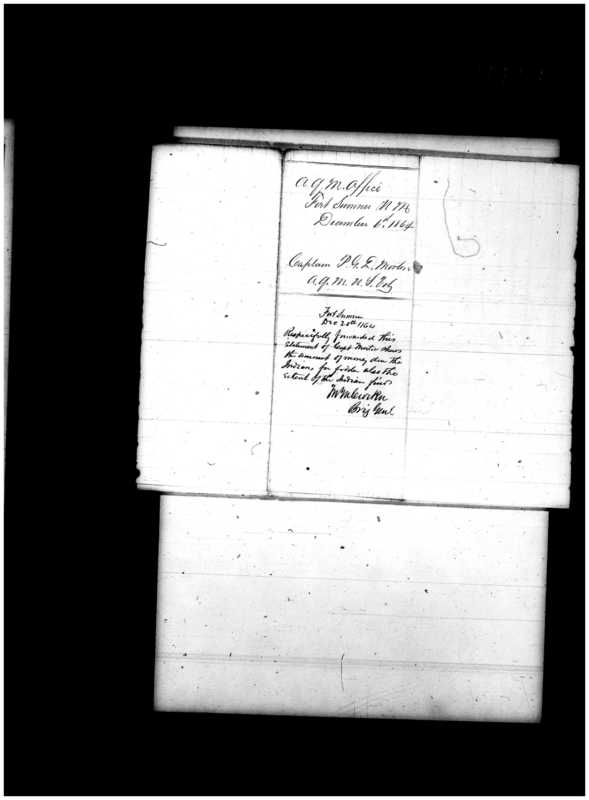 A. Q. M. Office
Fort Sumner N. M.
December 6th, 1864
Captain P. G. L.
A. Q. M. U. S. Vols
Fort Sumner
Dec 20th 1864
Respectfully forwarded this
statement of Capt shows
the amount of money due the
Indians for fodder also the
extent of the Indian
Brig Genl